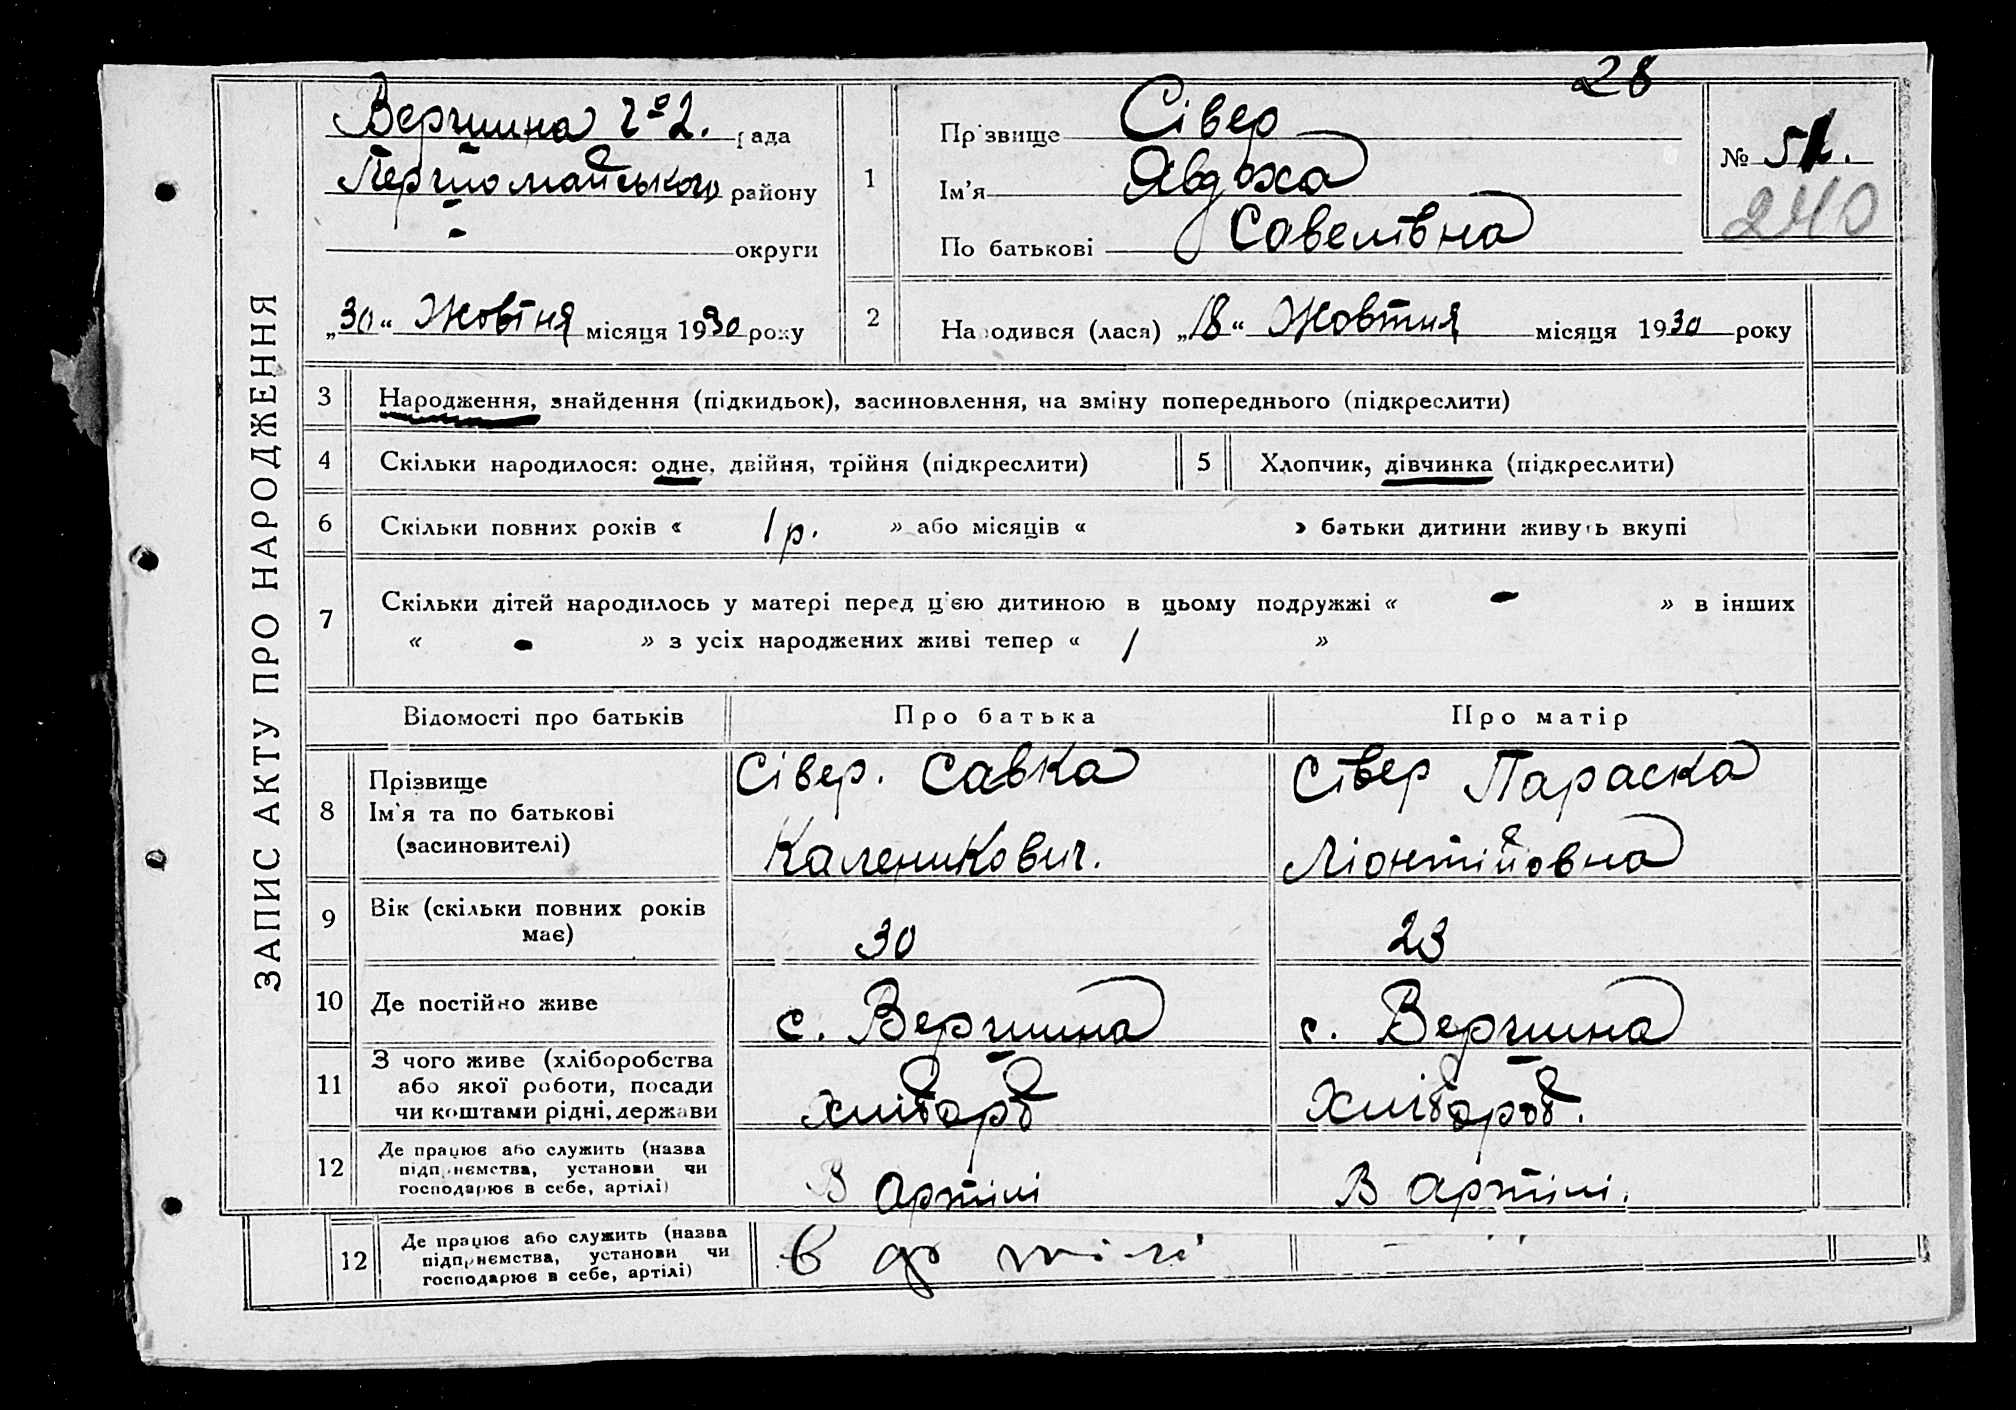 28
ЗАПИС АКТУ ПРО НАРОДЖЕННЯ
Вершина ч о 2. рада
Першомайського району
- округи
„30“ Жовтня місяця 1930 року
1
Прізвище Сівер
Ім’я Явдоха
По батькові Савелівна
№ 51.
240
2 Народився (лася) „18“ Жовтня місяця 1930 року
3 Народження, знайдення (підкидьок), засиновлення, на зміну попереднього (підкреслити)
4 Скільки народилося: одне, двійня, трійня (підкреслити) 5 Хлопчик, дівчинка (підкреслити)
6 Скільки повних років « 1 р. » або місяців « » батьки дитини живуть вкупі
7 Скільки дітей народилось у матері перед ц'єю дитиною в цьому подружжі « - » в інших
« - » з усіх народжених живі тепер « 1 »
Відомості про батьків Про батька Про матір
8 Прізвище
Ім'я та по батькові
(засиновителі)
Сівер. Савка
Каленикович.
Сівер Параска
Ліонтійовна
9 Вік (скільки повних років
має)
30 23
10 Де постійно живе с. Вершина с. Вершина
11 З чого живе (хліборобства
або якої роботи, посади
чи коштами рідні, держави
хлібороб хлібороб.
12 Де працює або служить (назва
підприємства, установи чи
господарює в себе, артілі)
В артілі В артілі.
12 Де працює або служить (назва
підприємства, установи чи
господарює в себе, артілі)
в артілі